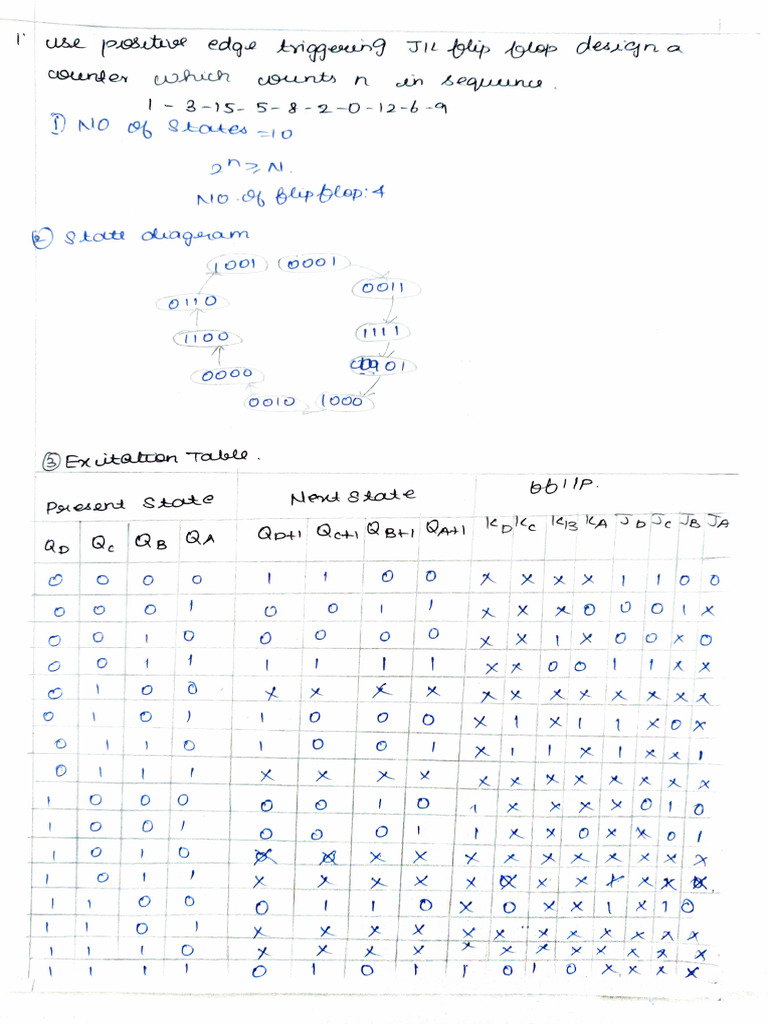 1. use positive edge triggering JK flip flop design a
counter which counts n in sequence.
1 - 3 -15 - 5 - 8 - 2 - 0 -12 -6 -9
① NO of States =10
2ⁿ ≥ N.
NO. of flipflop: 4
② State diagram
1001 0001
0110 0011
1100 1111
0000 01
0010 1000
③ Excitation Table.
Present State Next State ff I/P.
QD QC QB QA QD+1 QC+1 QB+1 QA+1 KD KC KB KA JD JC JB JA
0 0 0 0 1 1 0 0 x x x x 1 1 0 0
0 0 0 1 0 0 1 1 x x x 0 0 0 1 x
0 0 1 0 0 0 0 0 x x 1 x 0 0 x 0
0 0 1 1 1 1 1 1 x x 0 0 1 1 x x
0 1 0 0 x x x x x x x x x x x x
0 1 0 1 1 0 0 0 x 1 x 1 1 x 0 x
0 1 1 0 1 0 0 1 x 1 1 x 1 x x 1
0 1 1 1 x x x x x x x x x x x x
1 0 0 0 0 0 1 0 1 x x x x 0 1 0
1 0 0 1 0 0 0 1 1 x x 0 x x 0 1
1 0 1 0 x x x x x x x x x x x x
1 0 1 1 x x x x x x x x x x x x
1 1 0 0 0 1 1 0 x 0 x x 1 x 1 0
1 1 0 1 x x x x x x x x x x x x
1 1 1 0 x x x x x x x x x x x x
1 1 1 1 0 1 0 1 1 0 1 0 x x x x